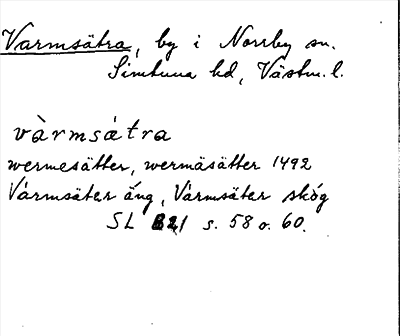 Varmsätra, by i Norrby sn.
Simtuna hd, Västm. l.
vàrmsǻtra
wermesätter, wermäsätter 1492
Vármsäter äng, Vármsäter skóg
SL B21 s. 58 o. 60.